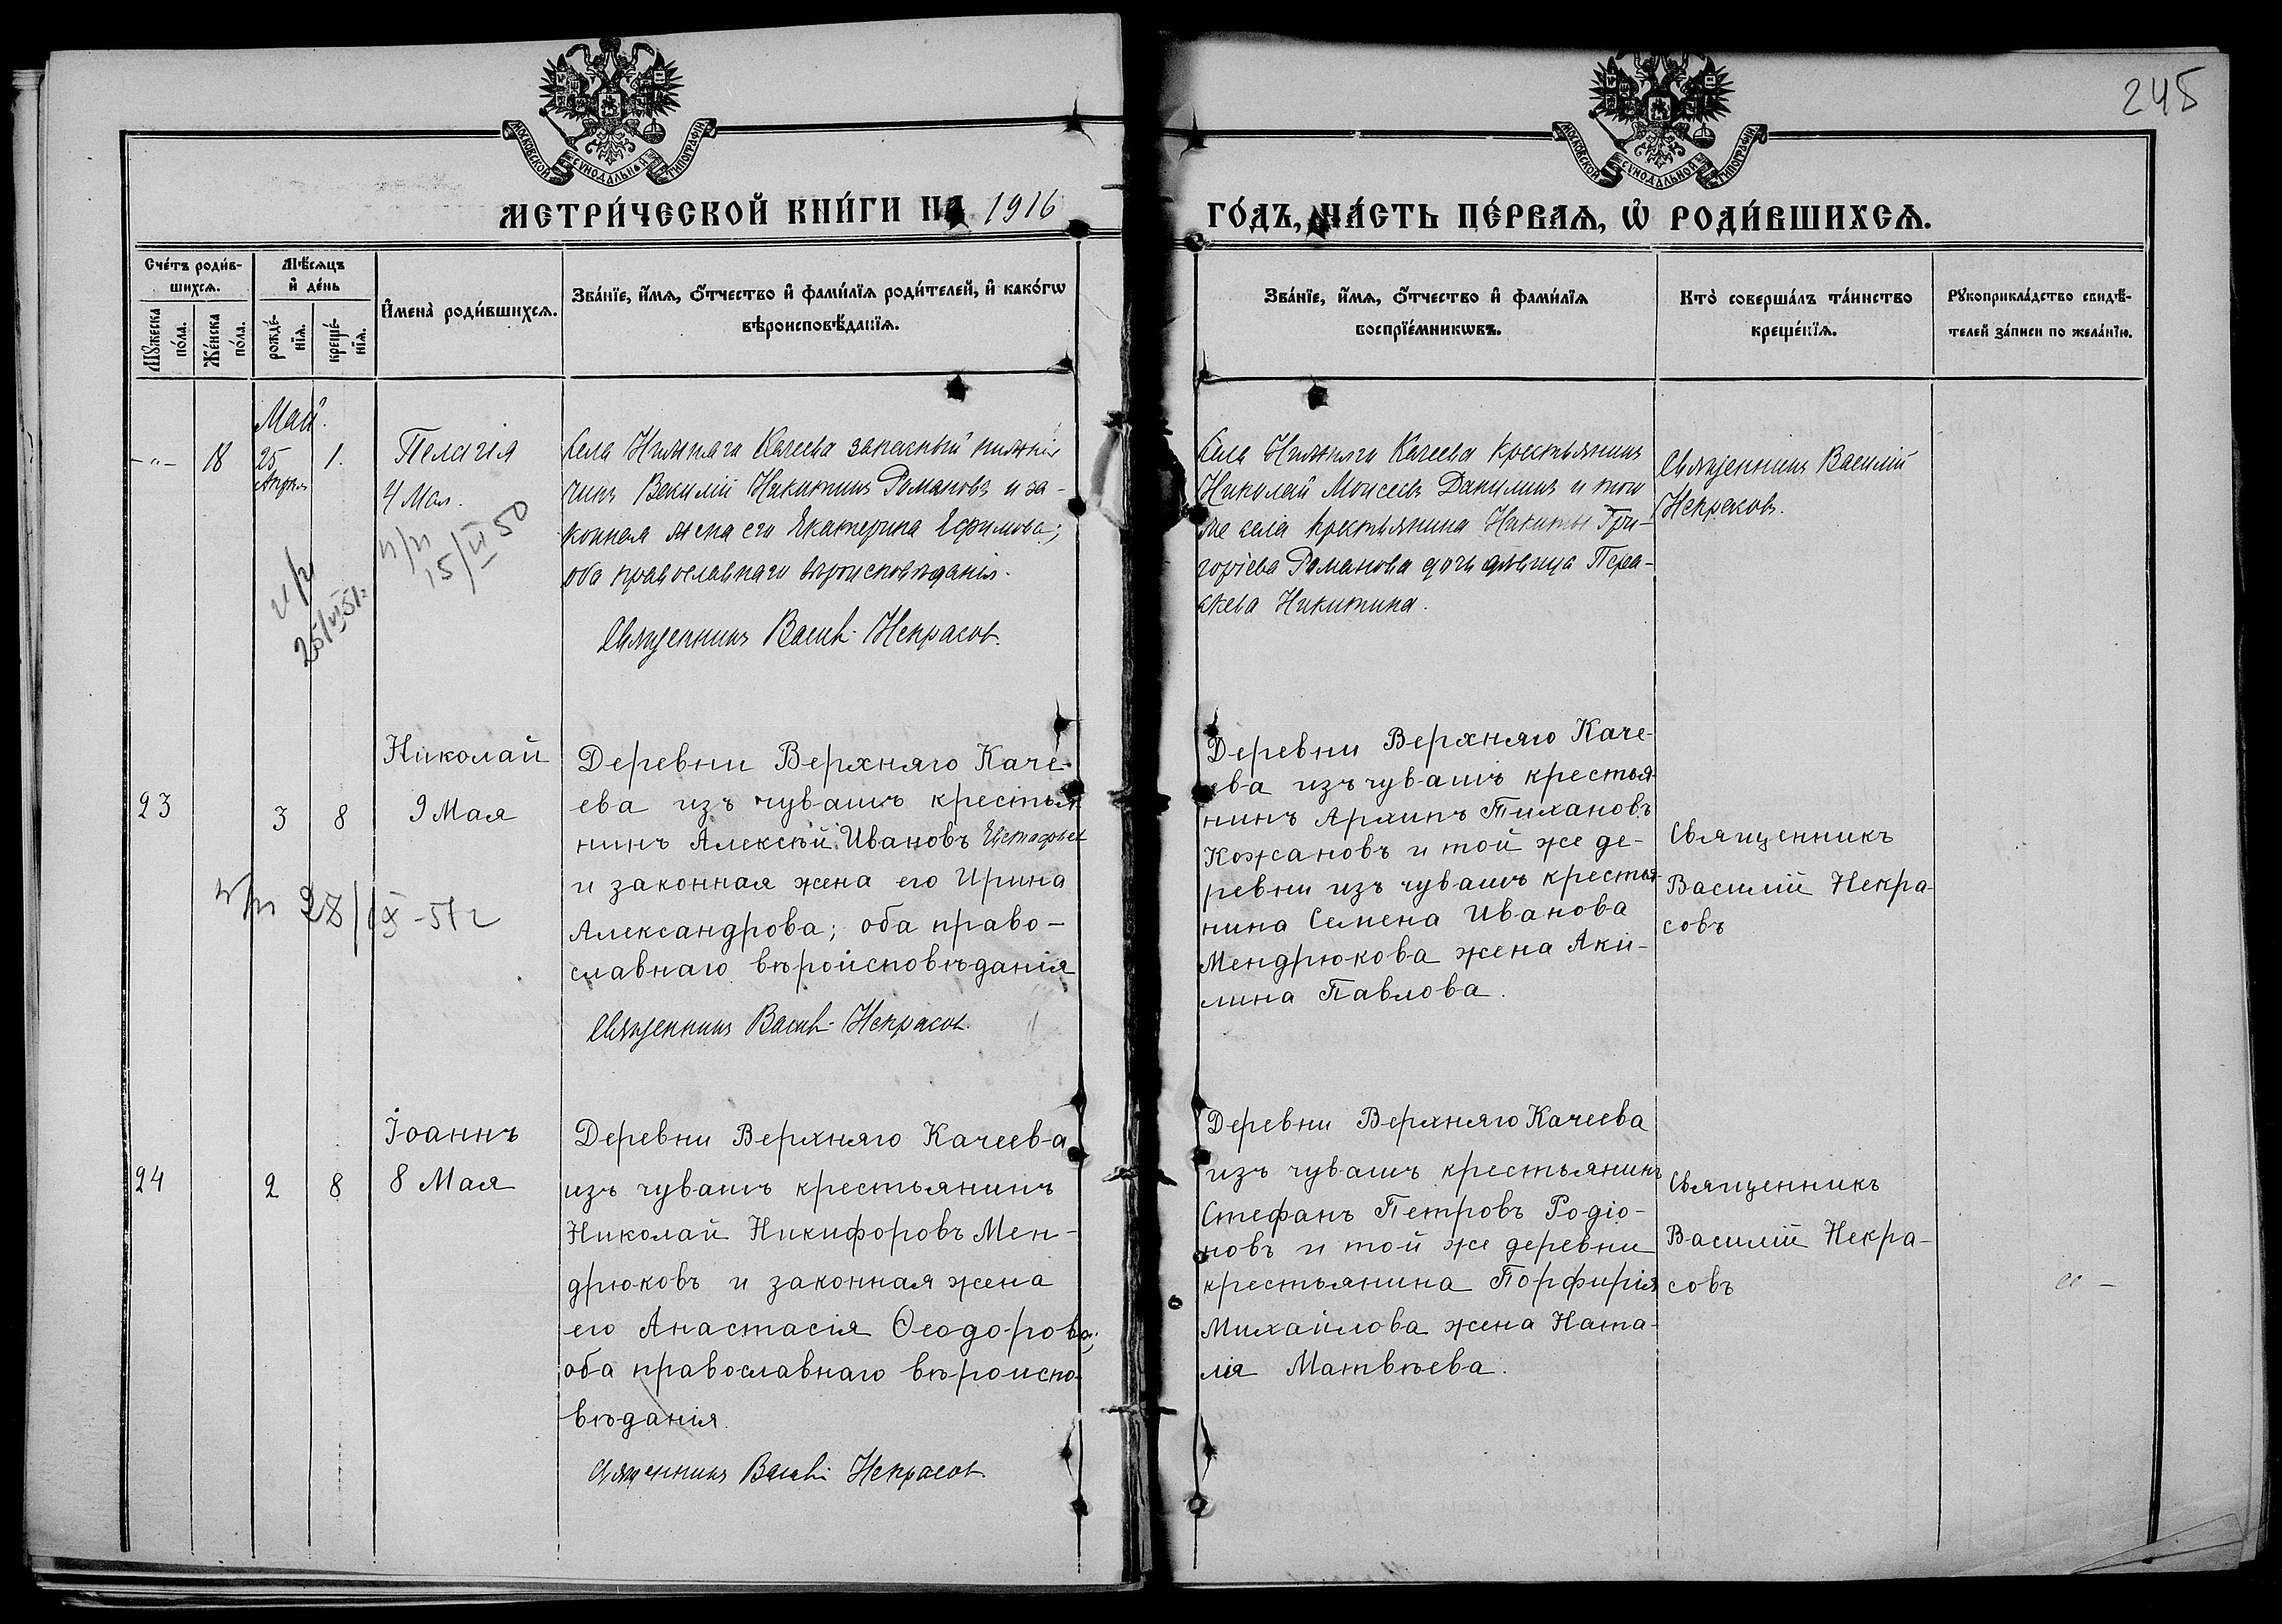 245
МОСКОВСКОЙ СѴНОДАЛЬНОЙ ТИПОГРАФІИ
МОСКОВСКОЙ СѴНОДАЛЬНОЙ ТИПОГРАФІИ
МЕТРИ́ЧЕСКОЙ КНИ́ГИ НА 1916
ГО́ДЪ, ЧА́СТЬ ПЕ́РВАѦ, Ѡ҆ РОДИ́ВШИХСѦ.
Сче́тъ роди́в-
шихсѧ.
Мꙋ́жеска
по́ла.
Же́нска
по́ла.
Мѣ́сѧцъ
и҆ де́нь
рожде́-
нїѧ.
креще́-
нїѧ.
И҆мена̀ роди́вшихсѧ.
Зва́нїе, и҆́мѧ, ѻ҆́тчество и҆ фами́лїѧ роди́телей, и҆ како́гѡ
вѣроисповѣ́данїѧ.
Зва́нїе, и҆́мѧ, ѻ҆́тчество и҆ фами́лїѧ
воспрїе́мникѡвъ.
Кто̀ соверша́лъ та́инство
креще́нїѧ.
Рꙋкоприкла́дство свидѣ́-
телей за́писи по жела́нїю.
Май.
-"- 18 25 1.
Апрѣля
Пелагія
4 Мая.
п/п
15/VI 50
п/п
25/VI 51г.
Села Нижняго Качеева запасный нижній
чинъ Василій Никитинъ Романовъ и за-
конная жена его Екатерина Ефимова;
оба православнаго вѣроисповѣданія.
Священникъ Васил. Некрасовъ.
Села Нижняго Качеева крестьянинъ
Николай Моисеевъ Данилинъ и того
же села крестьянина Никиты Гри-
горіева Романова дочь дѣвица Пара-
скева Никитина.
Священникъ Василій
Некрасовъ.
23 3 8
Николай
9 Мая
п/п 28/IX-51г
Деревни Верхняго Каче-
ева изъ чувашъ крестья-
нинъ Алексѣй Ивановъ Евстафьев
и законная жена его Ирина
Александрова; оба право-
славнаго вѣроисповѣданія
Священникъ Васил. Некрасовъ.
Деревни Верхняго Каче-
ева изъ чувашъ крестья-
нинъ Архипъ Тихановъ
Кожановъ и той же де-
ревни изъ чувашъ крестья-
нина Семена Иванова
Мендрюкова жена Аки-
лина Павлова.
Священникъ
Василій Некра-
совъ
24 2 8
Іоаннъ
8 Мая
Деревни Верхняго Качеева
изъ чувашъ крестьянинъ
Николай Никифоровъ Мен-
дрюковъ и законная жена
его Анастасія Ѳеодорова;
оба православнаго вѣроиспо-
вѣданія.
Священникъ Васил. Некрасовъ
Деревни Верхняго Качеева
изъ чувашъ крестьянинъ
Стефанъ Петровъ Родіо-
новъ и той же деревни
крестьянина Порфирія
Михайлова жена Ната-
лія Матвѣева.
Священникъ
Василій Некра-
совъ